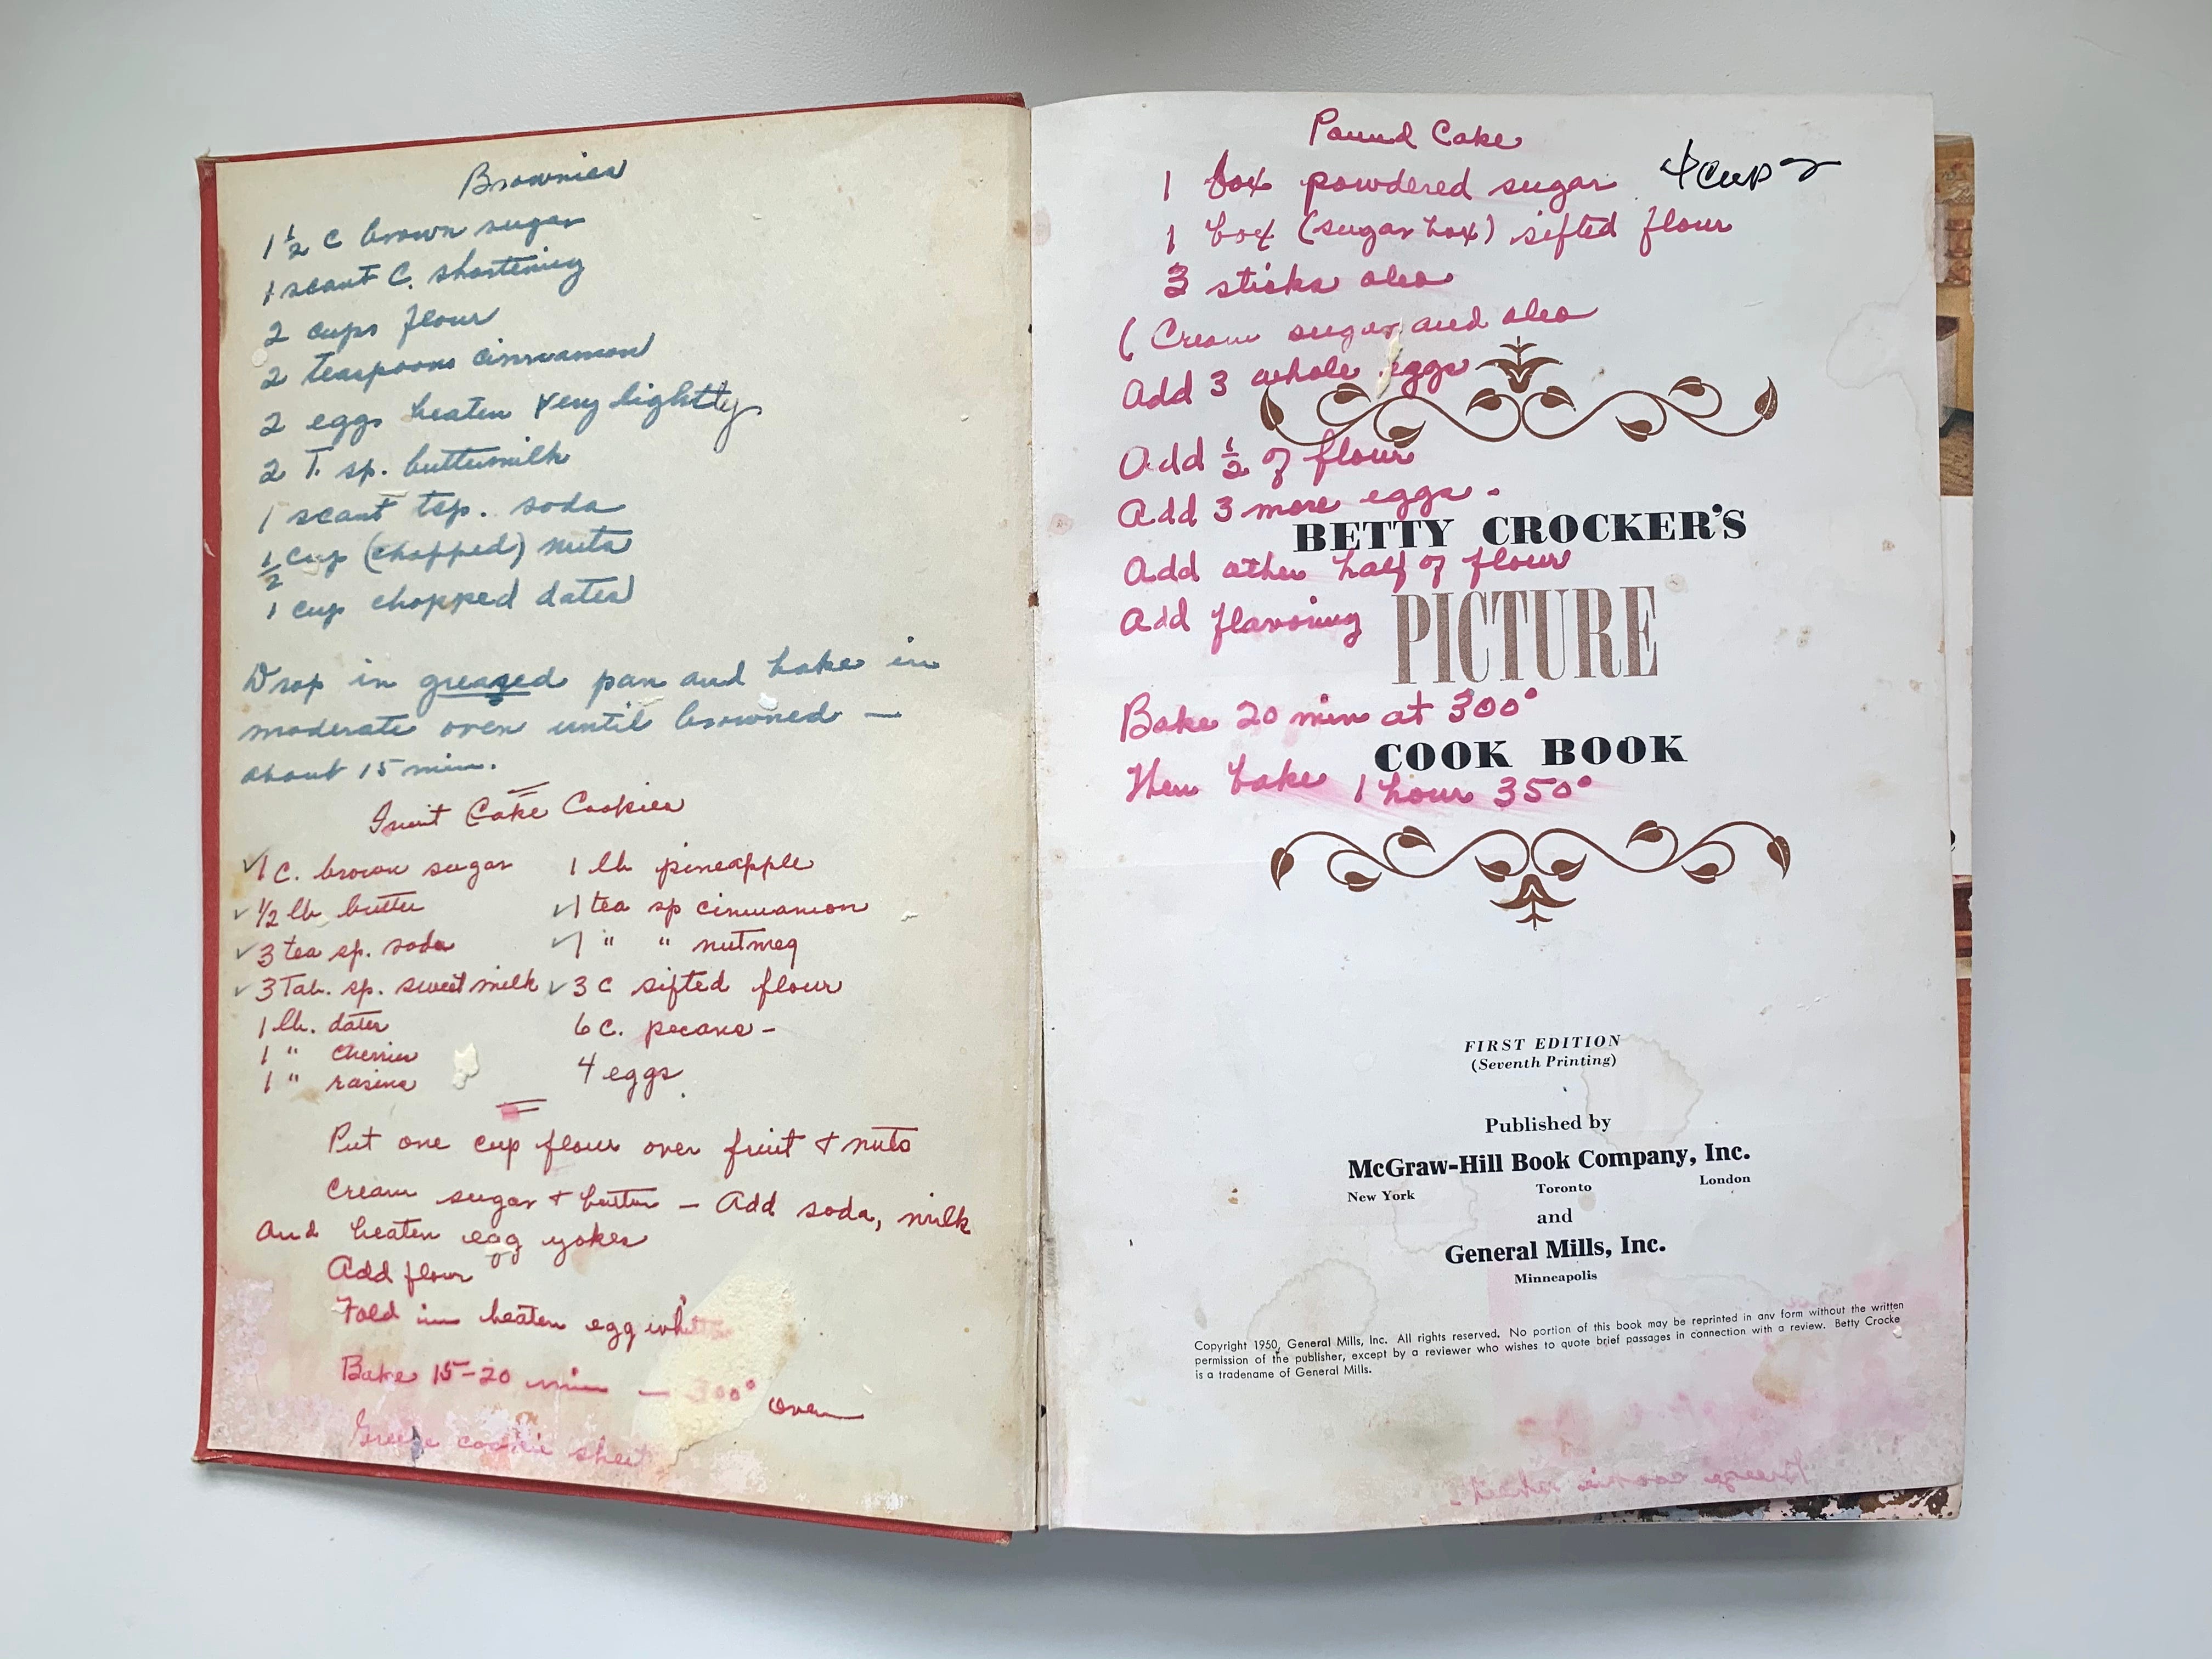 Brownies
1 1/2 C brown sugar
1 scant C. shortening
2 cups flour
2 teaspoons cinnamon
2 eggs beaten very lightly
2 T. sp. buttermilk
1 scant tsp. soda
1/2 cup (chopped) nuts
1 cup chopped dates
Drop in greased pan and bake in
moderate oven until browned —
about 15 min.
Fruit Cake Cookies
✓1 C. brown sugar
✓1/2 lb butter
✓3 tea sp. soda
✓3 Tab. sp. sweet milk
1 lb. dates
1 " cherries
1 " rasins
1 lb pineapple
✓1 tea sp cinnamon
✓1 " " nutmeg
✓3 C sifted flour
6 C. pecans -
4 eggs
Put one cup flour over fruit & nuts
Cream sugar & butter — Add soda, milk
And beaten egg yokes
Add flour
Fold in beaten egg whites
Bake 15-20 min — 300° oven
Grease cookie sheet
Pound Cake
1 box powdered sugar 4 cups
1 box (sugar box) sifted flour
3 sticks oleo
( Cream sugar and oleo
Add 3 whole eggs
Add 1/2 of flour
Add 3 more eggs -
BETTY CROCKER'S
Add other half of flour
Add flavoring
PICTURE
Bake 20 min at 300°
COOK BOOK
Then bake 1 hour 350°
FIRST EDITION
(Seventh Printing)
Published by
McGraw-Hill Book Company, Inc.
New York Toronto London
and
General Mills, Inc.
Minneapolis
Copyright 1950, General Mills, Inc. All rights reserved. No portion of this book may be reprinted in any form without the written
permission of the publisher, except by a reviewer who wishes to quote brief passages in connection with a review. Betty Crocke
is a tradename of General Mills.